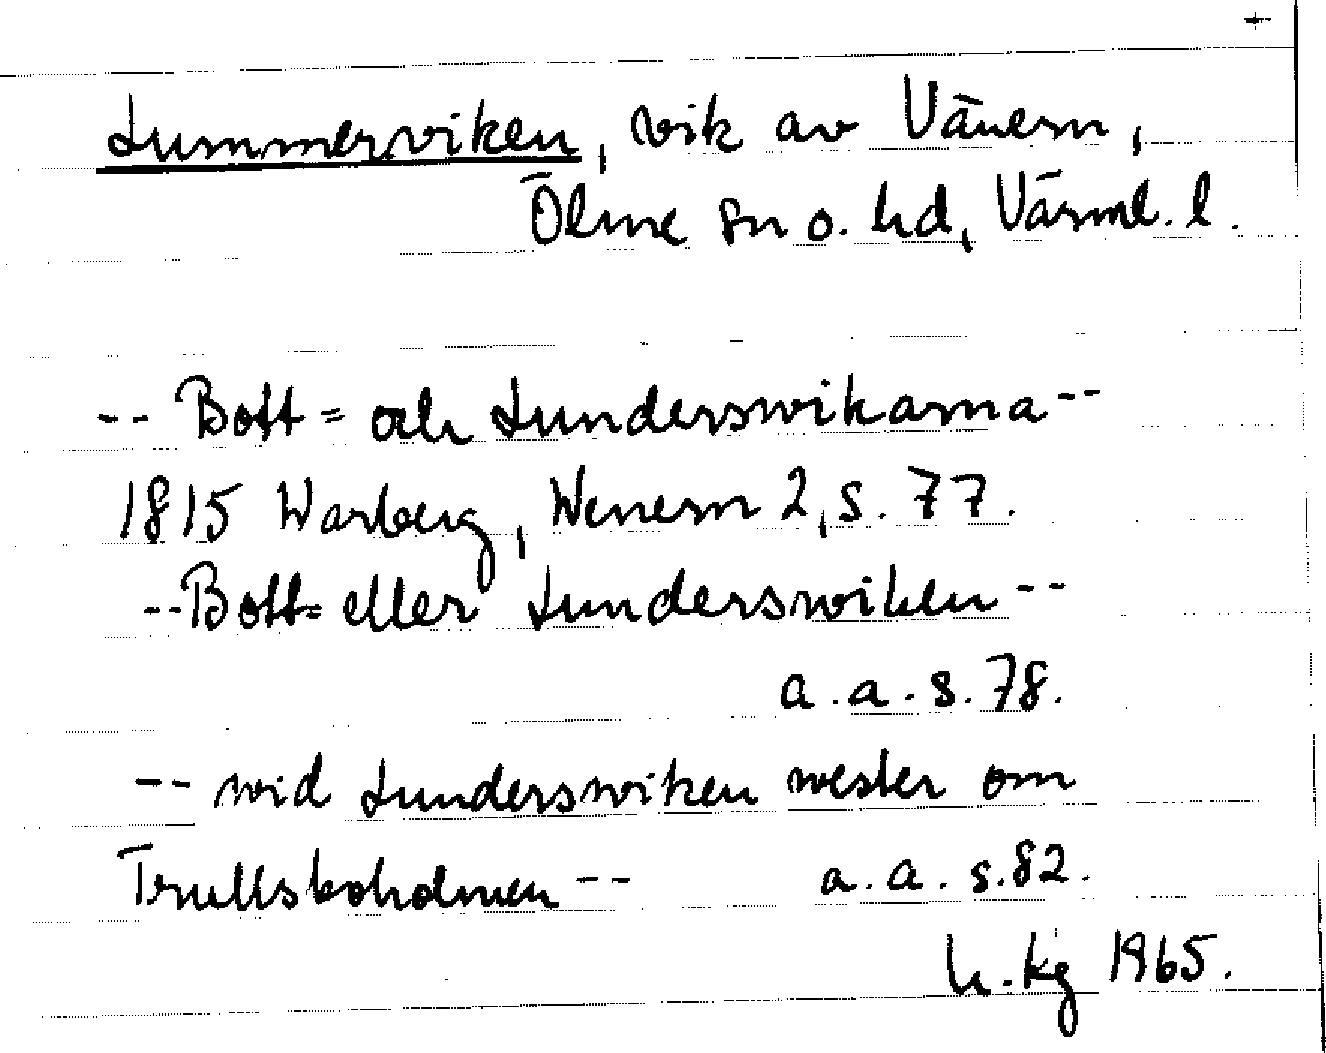 Lummerviken, vik av Vänern,
Ölme sn o. hd, Värml. l.
-- Bott= och Lunderswikarna --
1815 Warberg, Wenern 2, s. 77.
-- Bott= eller Lunderswiken --
a.a. s. 78.
-- wid Lunderswiken wester om
Trullsboholmen -- a.a. s. 82.
1965.